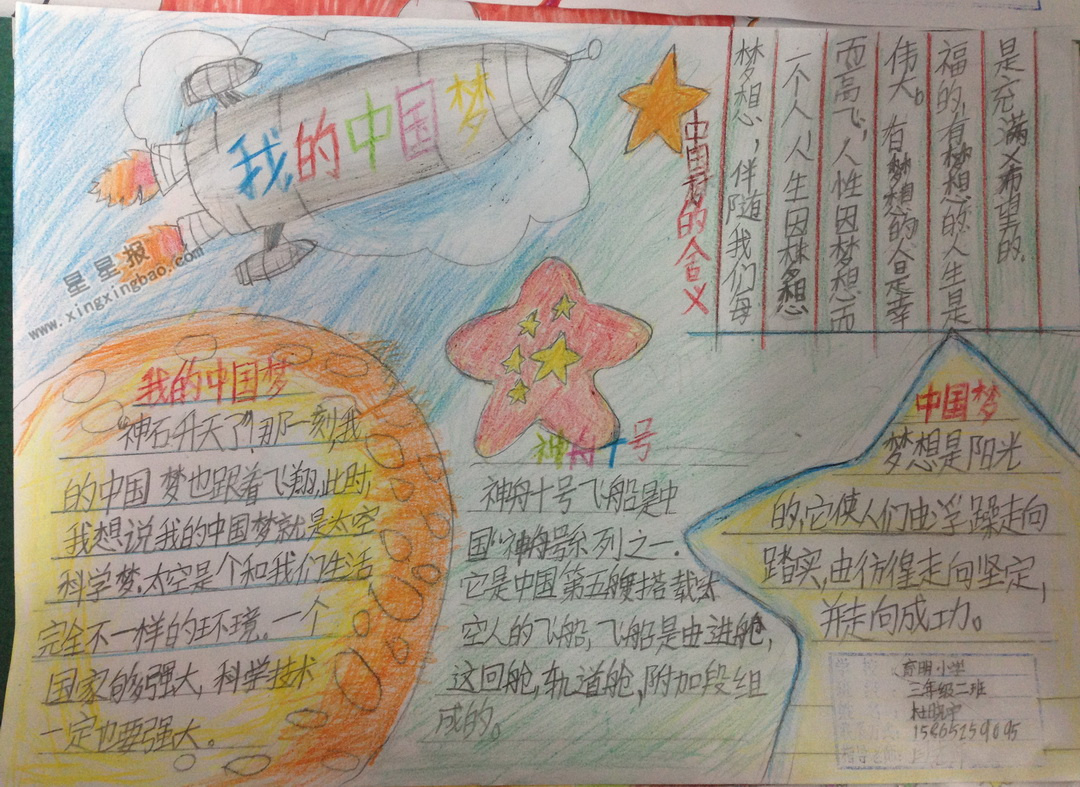 我的中国梦
星星报
www.xingxingbao.com
中国梦的含义
梦想，伴随我们每
一个人，人生因梦想
而高飞，人性因梦想而
伟大。有梦想的人是幸
福的，有梦想的人生是
是充满义希望的.
我的中国梦
"神石升天了"，那一刻，我
的中国梦也跟着飞翔，此时，
我想说我的中国梦就是太空
科学梦.太空是个和我们生活
完全不一样的环境。一个
国家够强大，科学技术
一定也要强大。
神舟十号
神舟十号飞船是中
国"神舟号系列之一.
它是中国第五艘搭载
空人的飞船，飞船是由进舱，
这回舱，轨道舱，附加段组
成的。
中国梦
梦想是阳光
的，它使人们由浮躁走向
踏实，由彷徨走向坚定，
并走向成功。
学校
育明小学
三年级二班